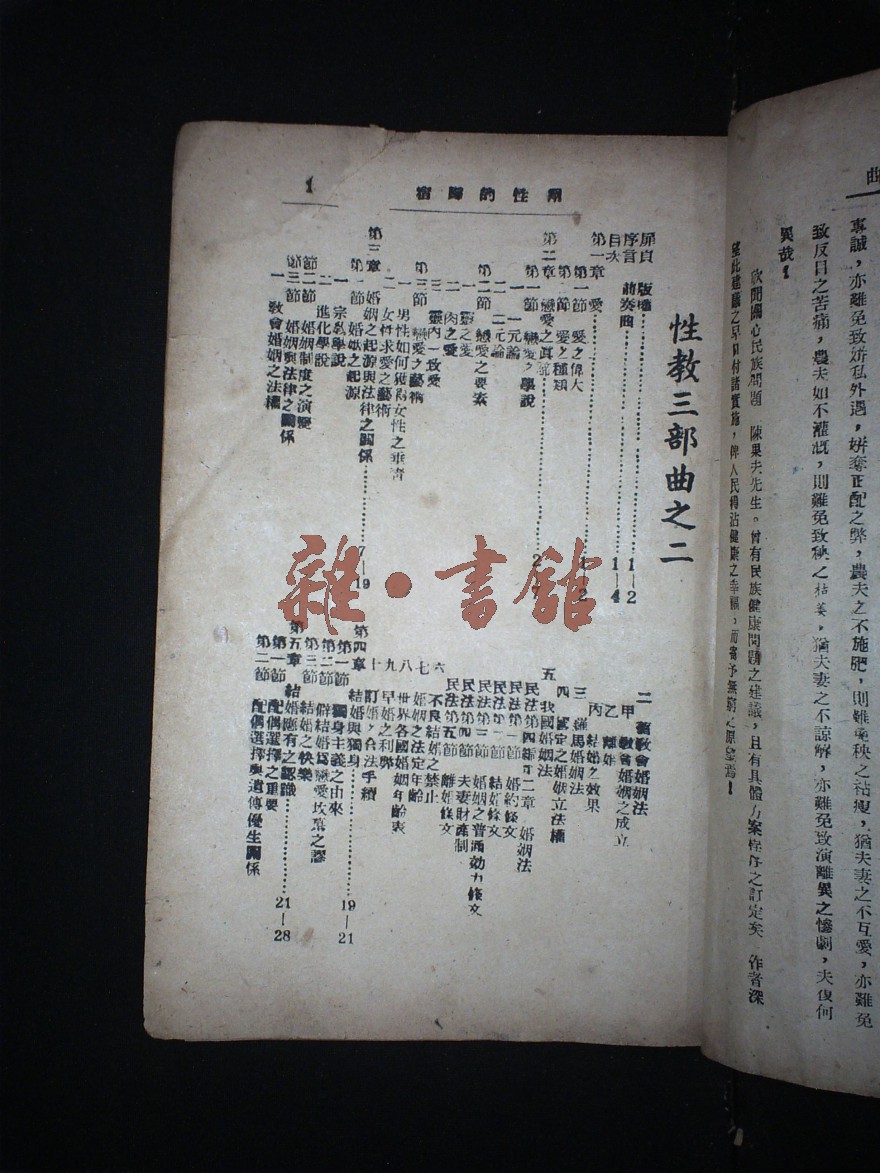 曲
專誠，亦難免致姘私外遇，姘奪正配之弊，農夫之不施肥，則難免秧之祜瘦，猶夫妻之不互愛，亦難免
致反目之苦痛，農夫如不灌溉，則難免致秧之枯萎，猶夫妻之不諒解，亦難免致演離異之慘劇，夫復何
異哉！
欣聞關心民族問題 陳果夫先生。曾有民族健康問題之建議，且有具體方案程序之訂定矣 作者深
望此建議之早日付諸實施，俾人民得沾健康之幸福，而寄予無窮之願望焉！
兩性的歸宿
1
性教三部曲之二
扉頁 版權
序言 前奏曲 1—2
目次 1—4
第一章 愛
第一節 愛之偉大
第二節 愛之種類
第二章 戀愛之真諦
第一節 戀愛之學說
一 一元論
二 二元論
第二節 戀愛之要素
一 靈之愛
二 肉之愛
三 靈肉一致愛
第三節 戀愛之藝術
一 男性如何獲得女性之垂青
二 女性求愛之藝術
第三章 婚姻之起源與法律之關係 7—19
第一節 婚姻之起源
一 宗教學說
二 進化學說
第二節 婚姻制度之演變
第三節 婚姻與法律之關係
一 教會婚姻之法權
二 舊教會婚姻法
甲 教會婚姻之成立
乙 離婚
丙 結婚之效果
三 羅馬婚姻法
四 國定之婚姻立法權
五 我國婚姻法
民法第四編第二章 婚姻法
民法第一節 婚約條文
民法第二節 結婚條文
民法第三節 婚姻之普通効力條文
民法第四節 夫妻財產制
民法第五節 離婚條文
六 不良結婚之禁止
七 婚姻之法定年齡
八 世界各國婚姻年齡表
九 早婚之利弊
十 訂婚之合法手續
第四章 結婚與獨身 19—21
第一節 獨身主義之由來
第二節 僻結婚爲戀愛坟墓之謬
第三節 結婚之快樂
第五章 結婚應有之認識 21—28
第一節 配偶選擇之重要
第二節 配偶選擇與遺傳優生關係
雜·書館